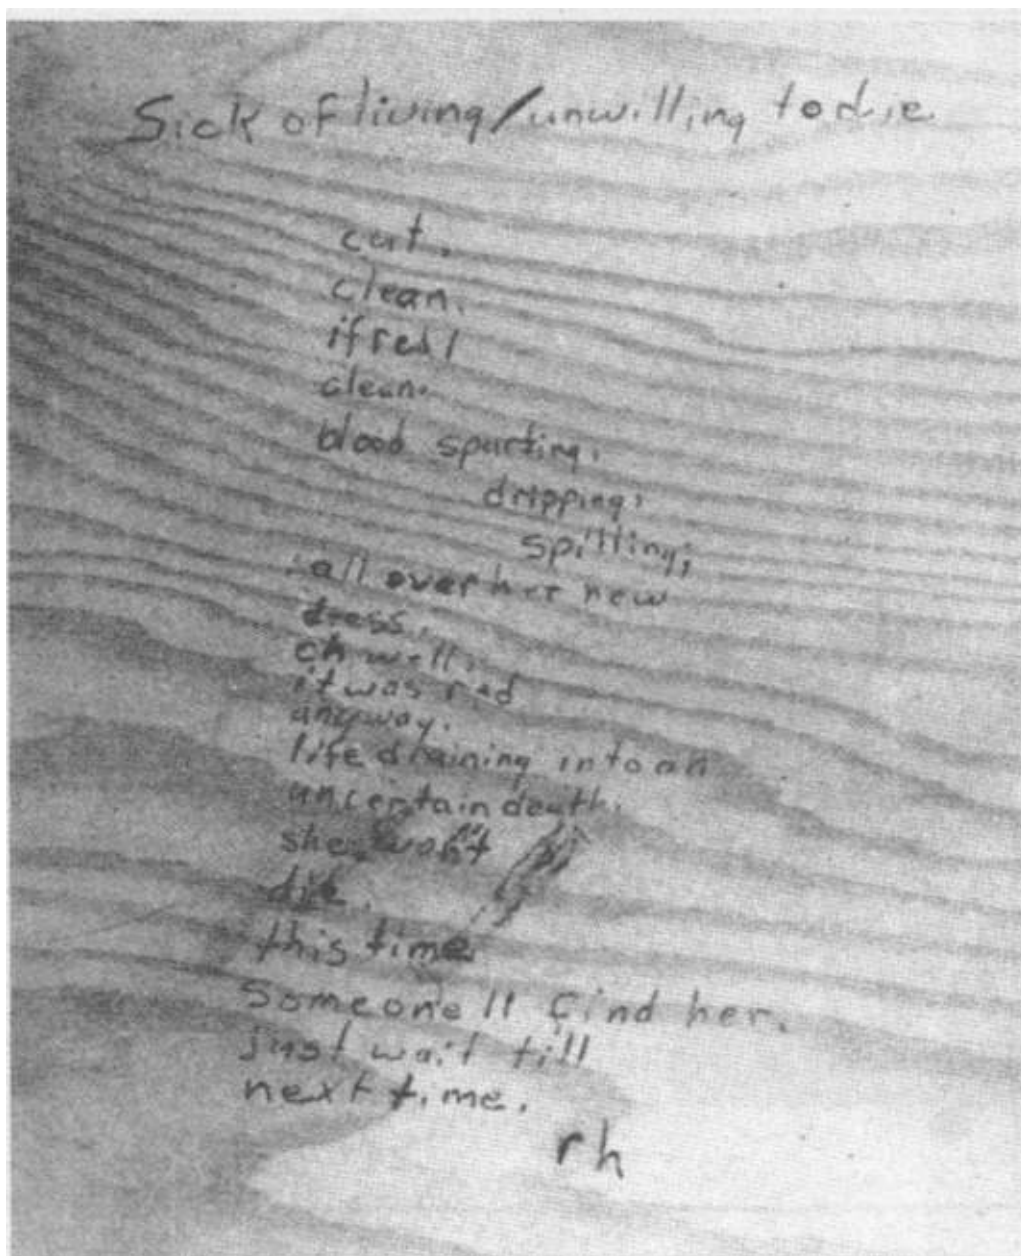 Sick of living/unwilling to die
cut.
clean.
if red/
clean.
blood spurting.
dripping,
spilling;
all over her new
dress.
oh well,
it was red
anyway.
life draining into an
uncertain death.
she won't
die.
this time
Someone'll find her.
just wait till
next time.
rh